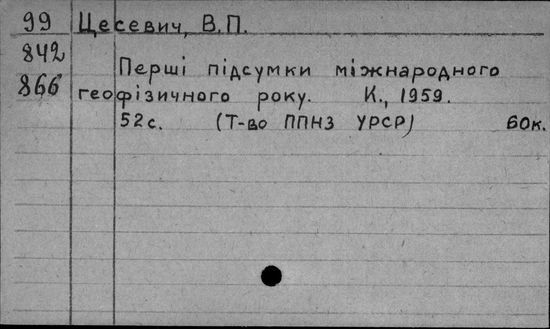 99 Цесевич, В.П.
842
Перші підсумки міжнародного
866 геофізичного року. К., 1959.
52 с. (Т-во ППНЗ УРСР) 60к.